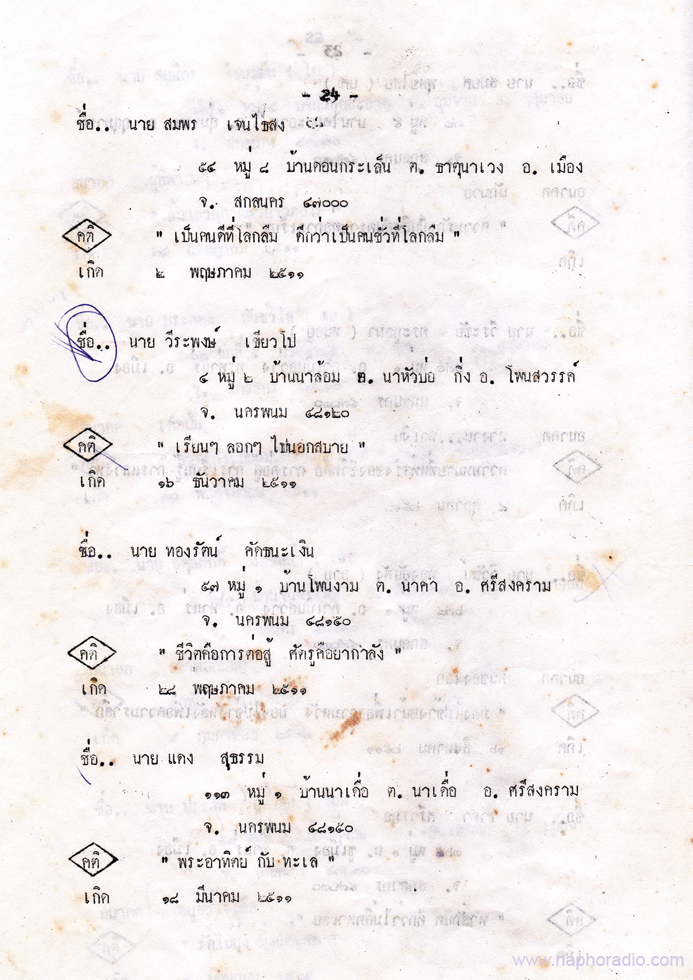 - 24 -
ชื่อ.. นาย สมพร เจนไชสง
๕๔ หมู่ ๘ บ้านดอนกระเล็น ต. ธาตุนาเวง อ. เมือง
จ. สกลนคร ๔๗๐๐๐
คติ " เป็นคนดีที่โลกลืม ดีกว่าเป็นคนชั่วที่โลกลืม "
เกิด ๒ พฤษภาคม ๒๕๑๑
ชื่อ.. นาย วีระพงษ์ เขียวโป
๔ หมู่ ๒ บ้านนาล้อม ต. นาหัวบ่อ กิ่ง อ. โพนสวรรค์
จ. นครพนม ๔๘๑๒๐
คติ " เรียนๆ ลอกๆ ไข่นอกสบาย "
เกิด ๑๖ ธันวาคม ๒๕๑๑
ชื่อ.. นาย ทองรัตน์ คัดธนะเงิน
๕๗ หมู่ ๑ บ้านโพนงาม ต. นาคำ อ. ศรีสงคราม
จ. นครพนม ๔๘๑๕๐
คติ " ชีวิตคือการต่อสู้ ศัตรูคือยากำลัง "
เกิด ๒๘ พฤษภาคม ๒๕๑๑
ชื่อ.. นาย แดง สุธรรม
๑๑๓ หมู่ ๑ บ้านนาเดื่อ ต. นาเดื่อ อ. ศรีสงคราม
จ. นครพนม ๔๘๑๕๐
คติ " พระอาทิตย์ กับ ทะเล "
เกิด ๑๘ มีนาคม ๒๕๑๑
www.naphoradio.com